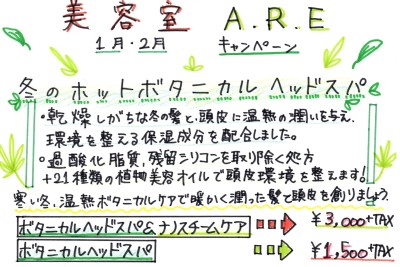 美容室 A.R.E
1月・2月 キャンペーン
冬のホットボタニカルヘッドスパ
・乾燥しがちな冬の髪と頭皮に温熱の潤いを与え、
環境を整える保湿成分を配合しました。
・過酸化脂質、残留シリコンを取り除く処方
+21種類の植物美容オイルで頭皮環境を整えます!
寒い冬、温熱ボタニカルケアで暖かく潤った髪と頭皮を創りましょう。
ボタニカルヘッドスパ&ナノスチームケア ¥3,000+TAX
ボタニカルヘッドスパ ¥1,500+TAX